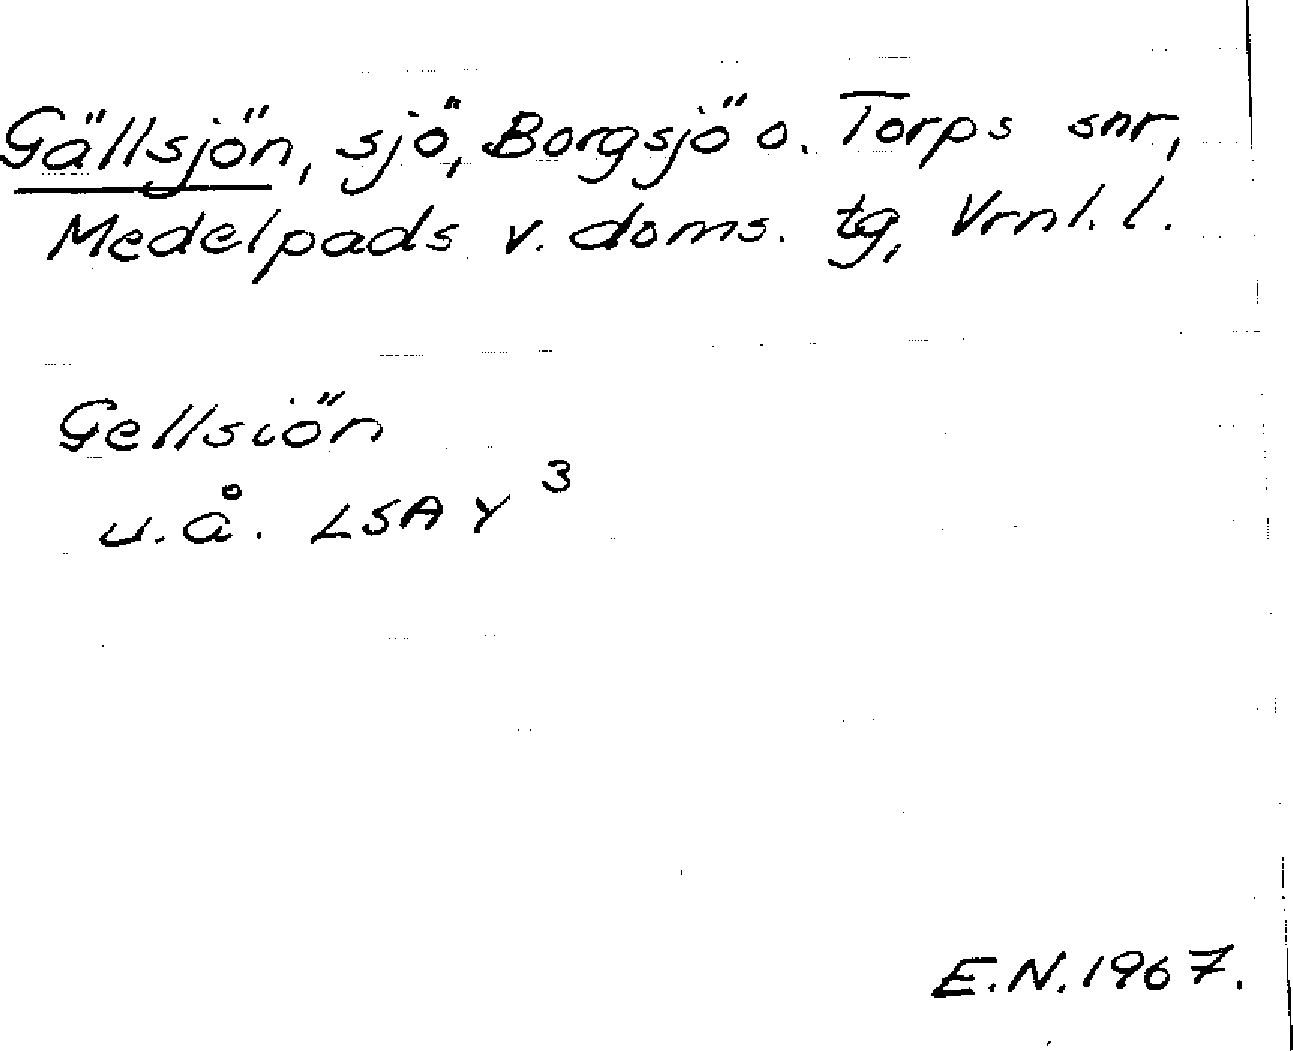 Gällsjön, sjö, Borgsjö o. Torps snr,
Medelpads v. doms. tg, Vrnl. l.
Gellsiön
u. å. LSA Y 3
E.N. 1967.